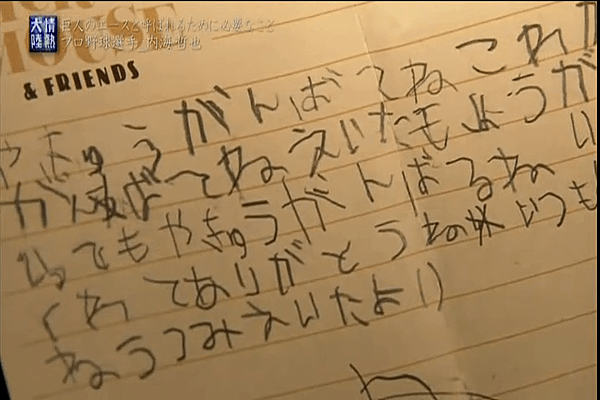 情熱大陸
巨人のエースと呼ばれるために必要なこと
プロ野球選手 内海哲也
MOUSE
& FRIENDS
やきゅうがんばてねこれ
がんばてねえいたもようが
いってもやきゅうがんばるねい
くれてありがとう いつも
ねうつみえいたより